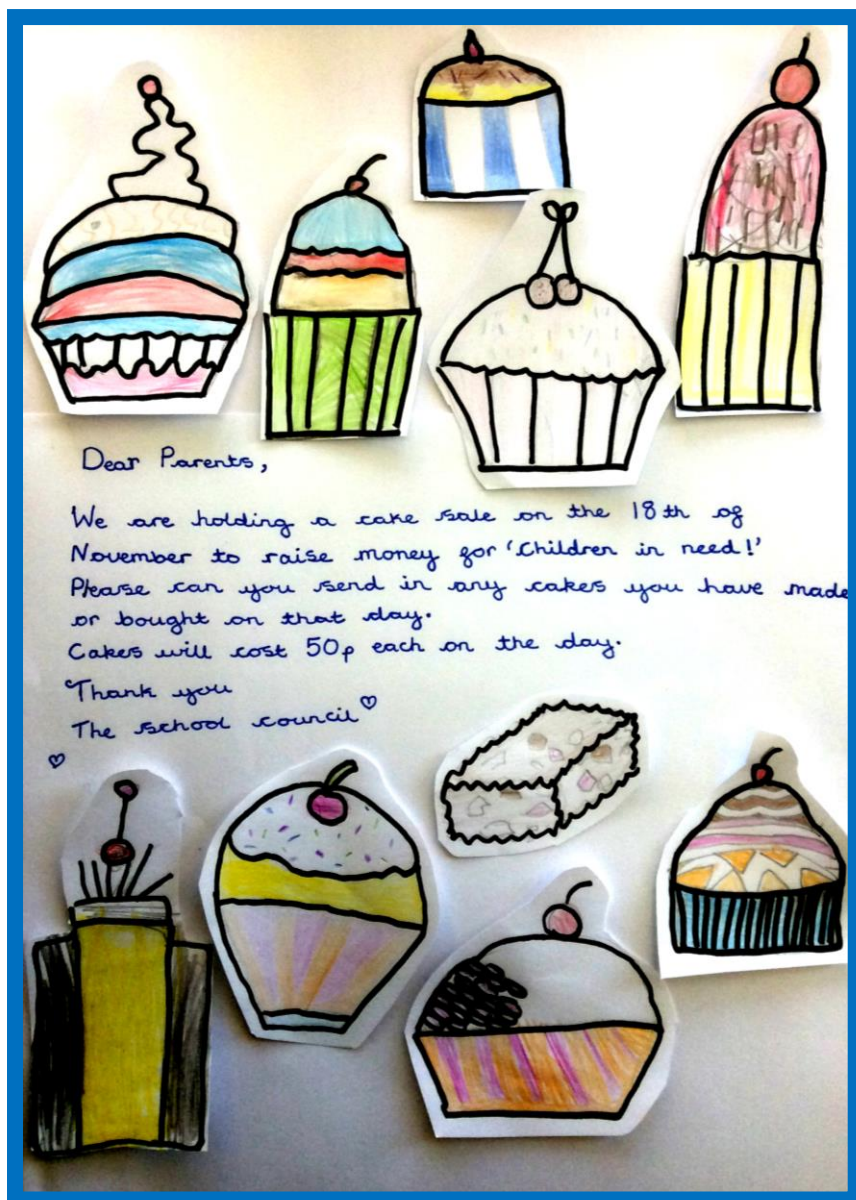 Dear Parents,
We are holding a cake sale on the 18th of
November to raise money for 'Children in need!'
Please can you send in any cakes you have made
or bought on that day.
Cakes will cost 50p each on the day.
Thank you
The school council